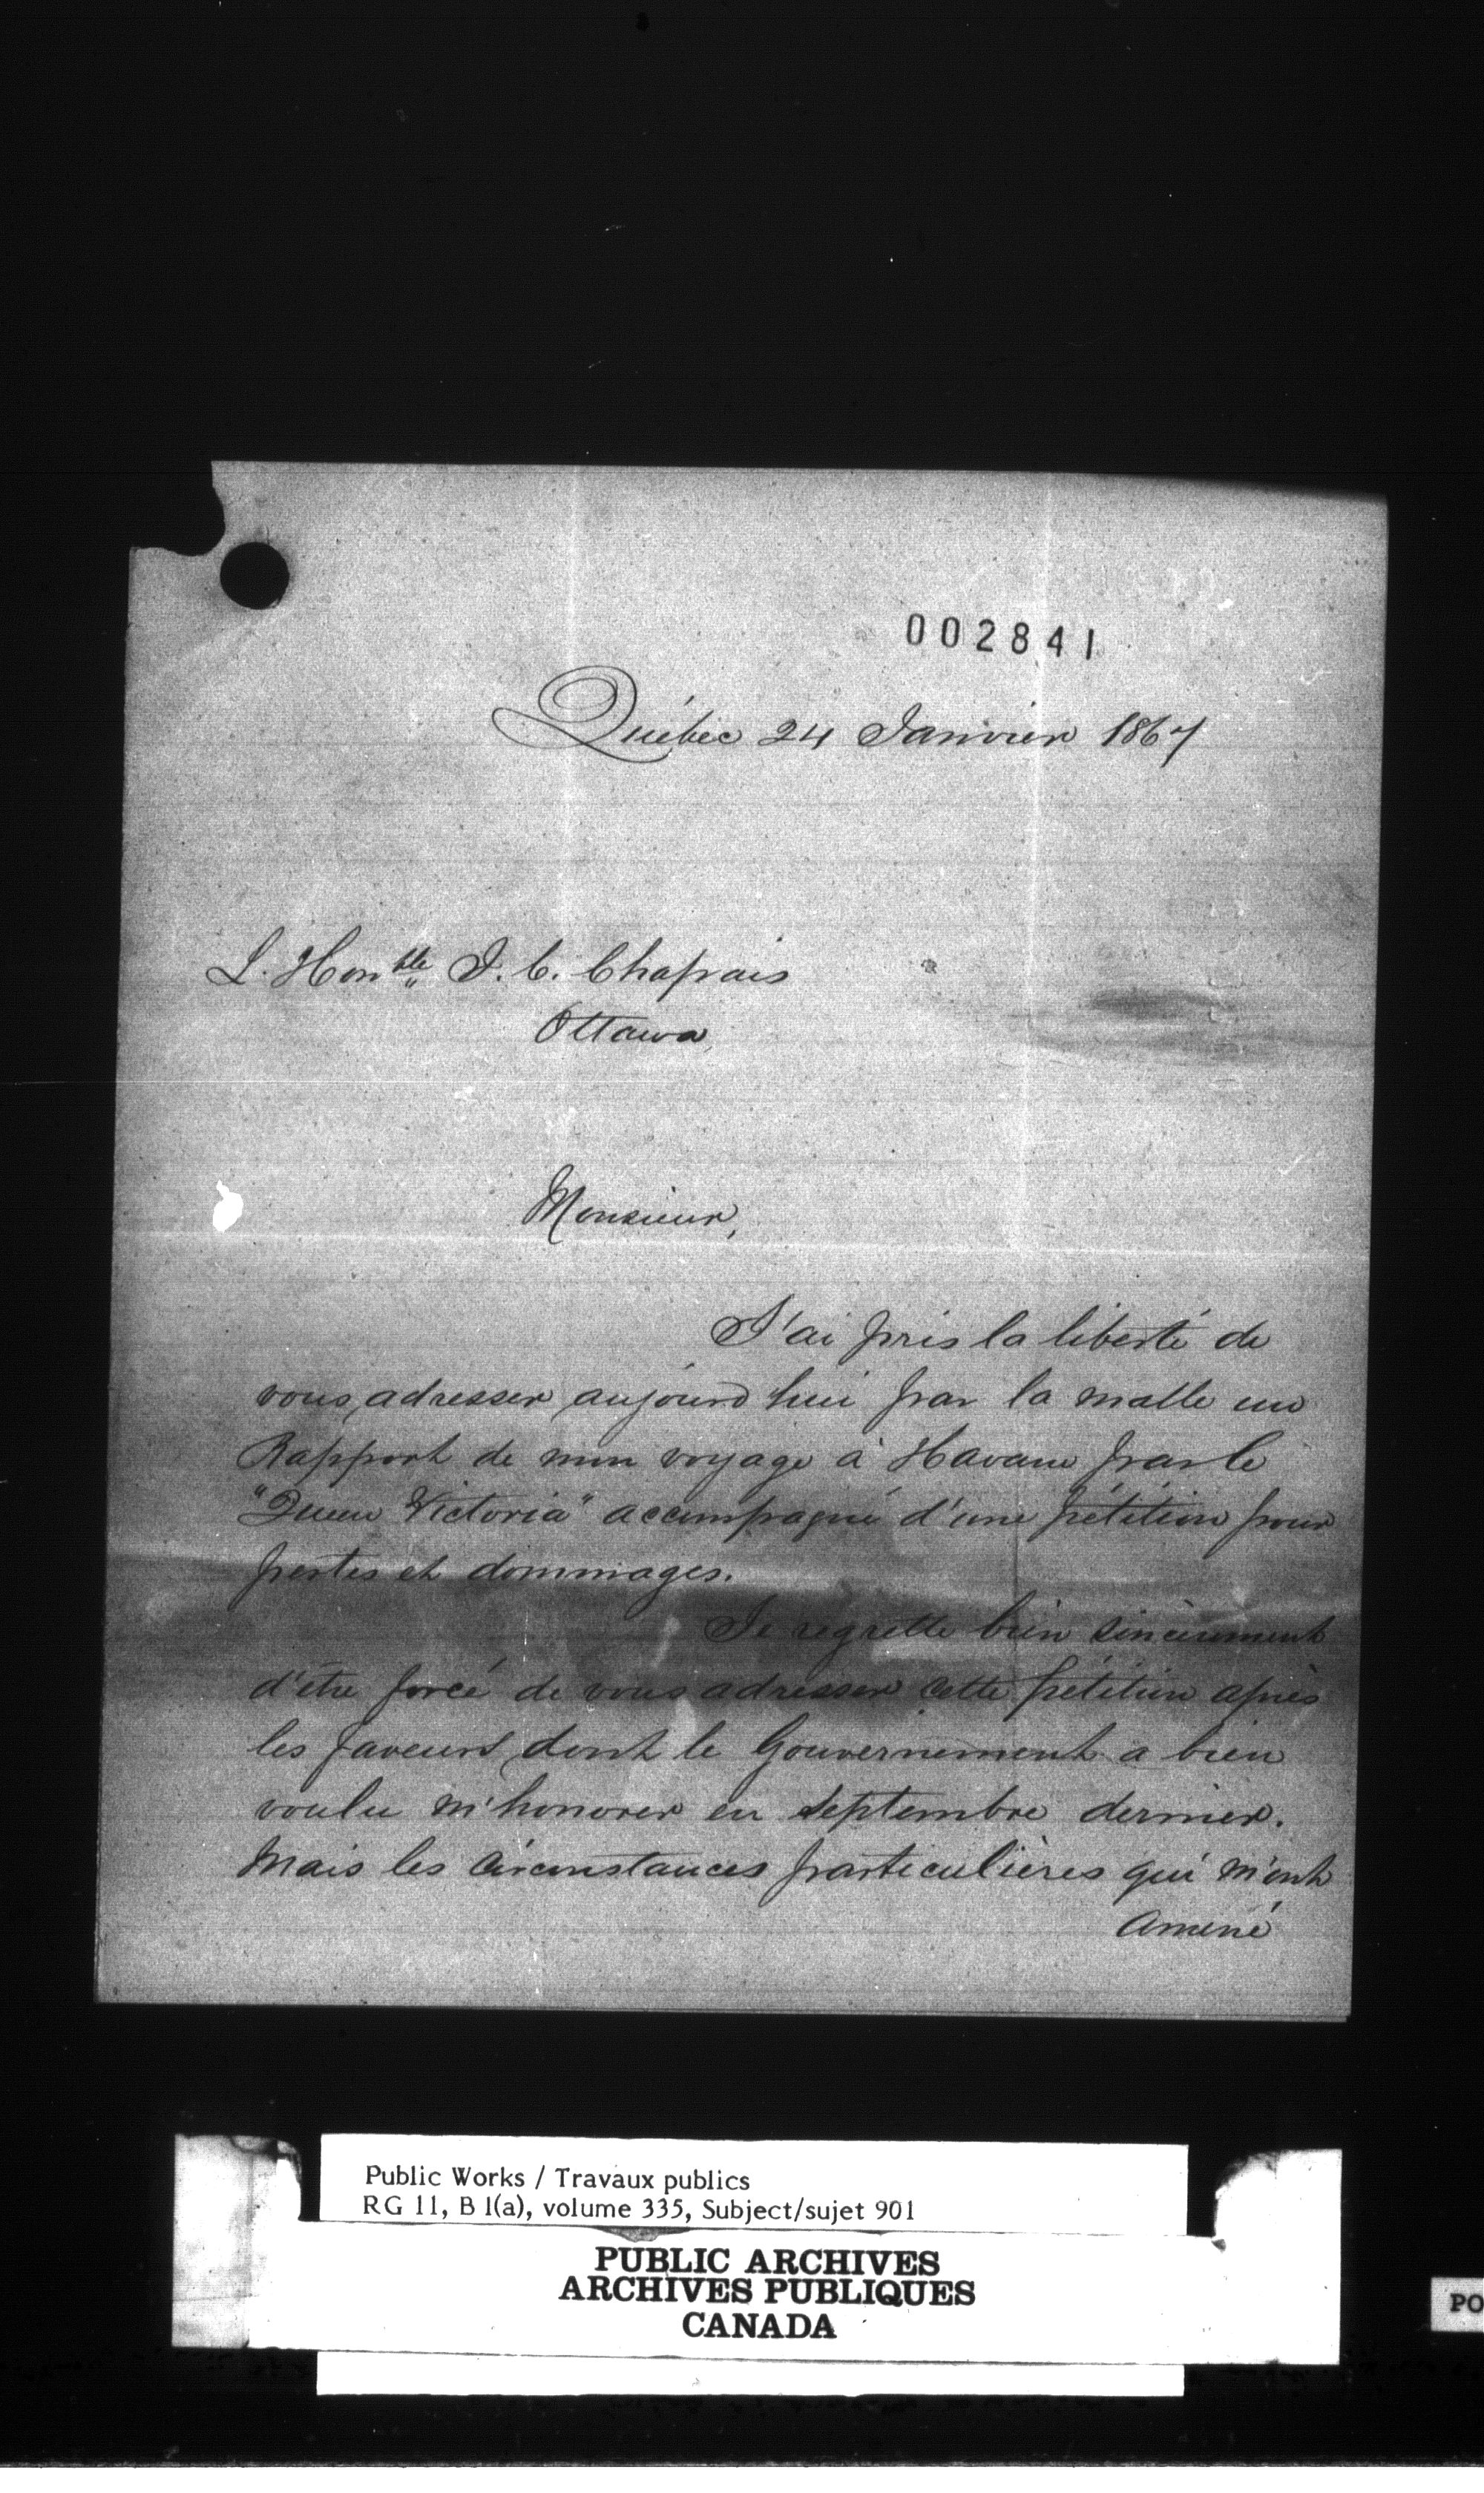 002841
Québec 24 Janvier 1867
L. Honble J. C. Chapais
Ottawa
Monsieur,
J'ai pris la liberté de
vous adresser aujourd'hui par la malle un
Rapport de mon voyage à Havane par le
"Queen Victoria" accompagné d'une pétition pour
pertes et dommages.
Je regrette bien sincèrement
d'être forcé de vous adresser cette pétition après
les faveurs dont le Gouvernement a bien
voulu m'honorer en Septembre dernier.
Mais les circonstances particulières qui m'ont
amené
Public Works / Travaux publics
RG 11, B 1(a), volume 335, Subject/sujet 901
PUBLIC ARCHIVES
ARCHIVES PUBLIQUES
CANADA
PO